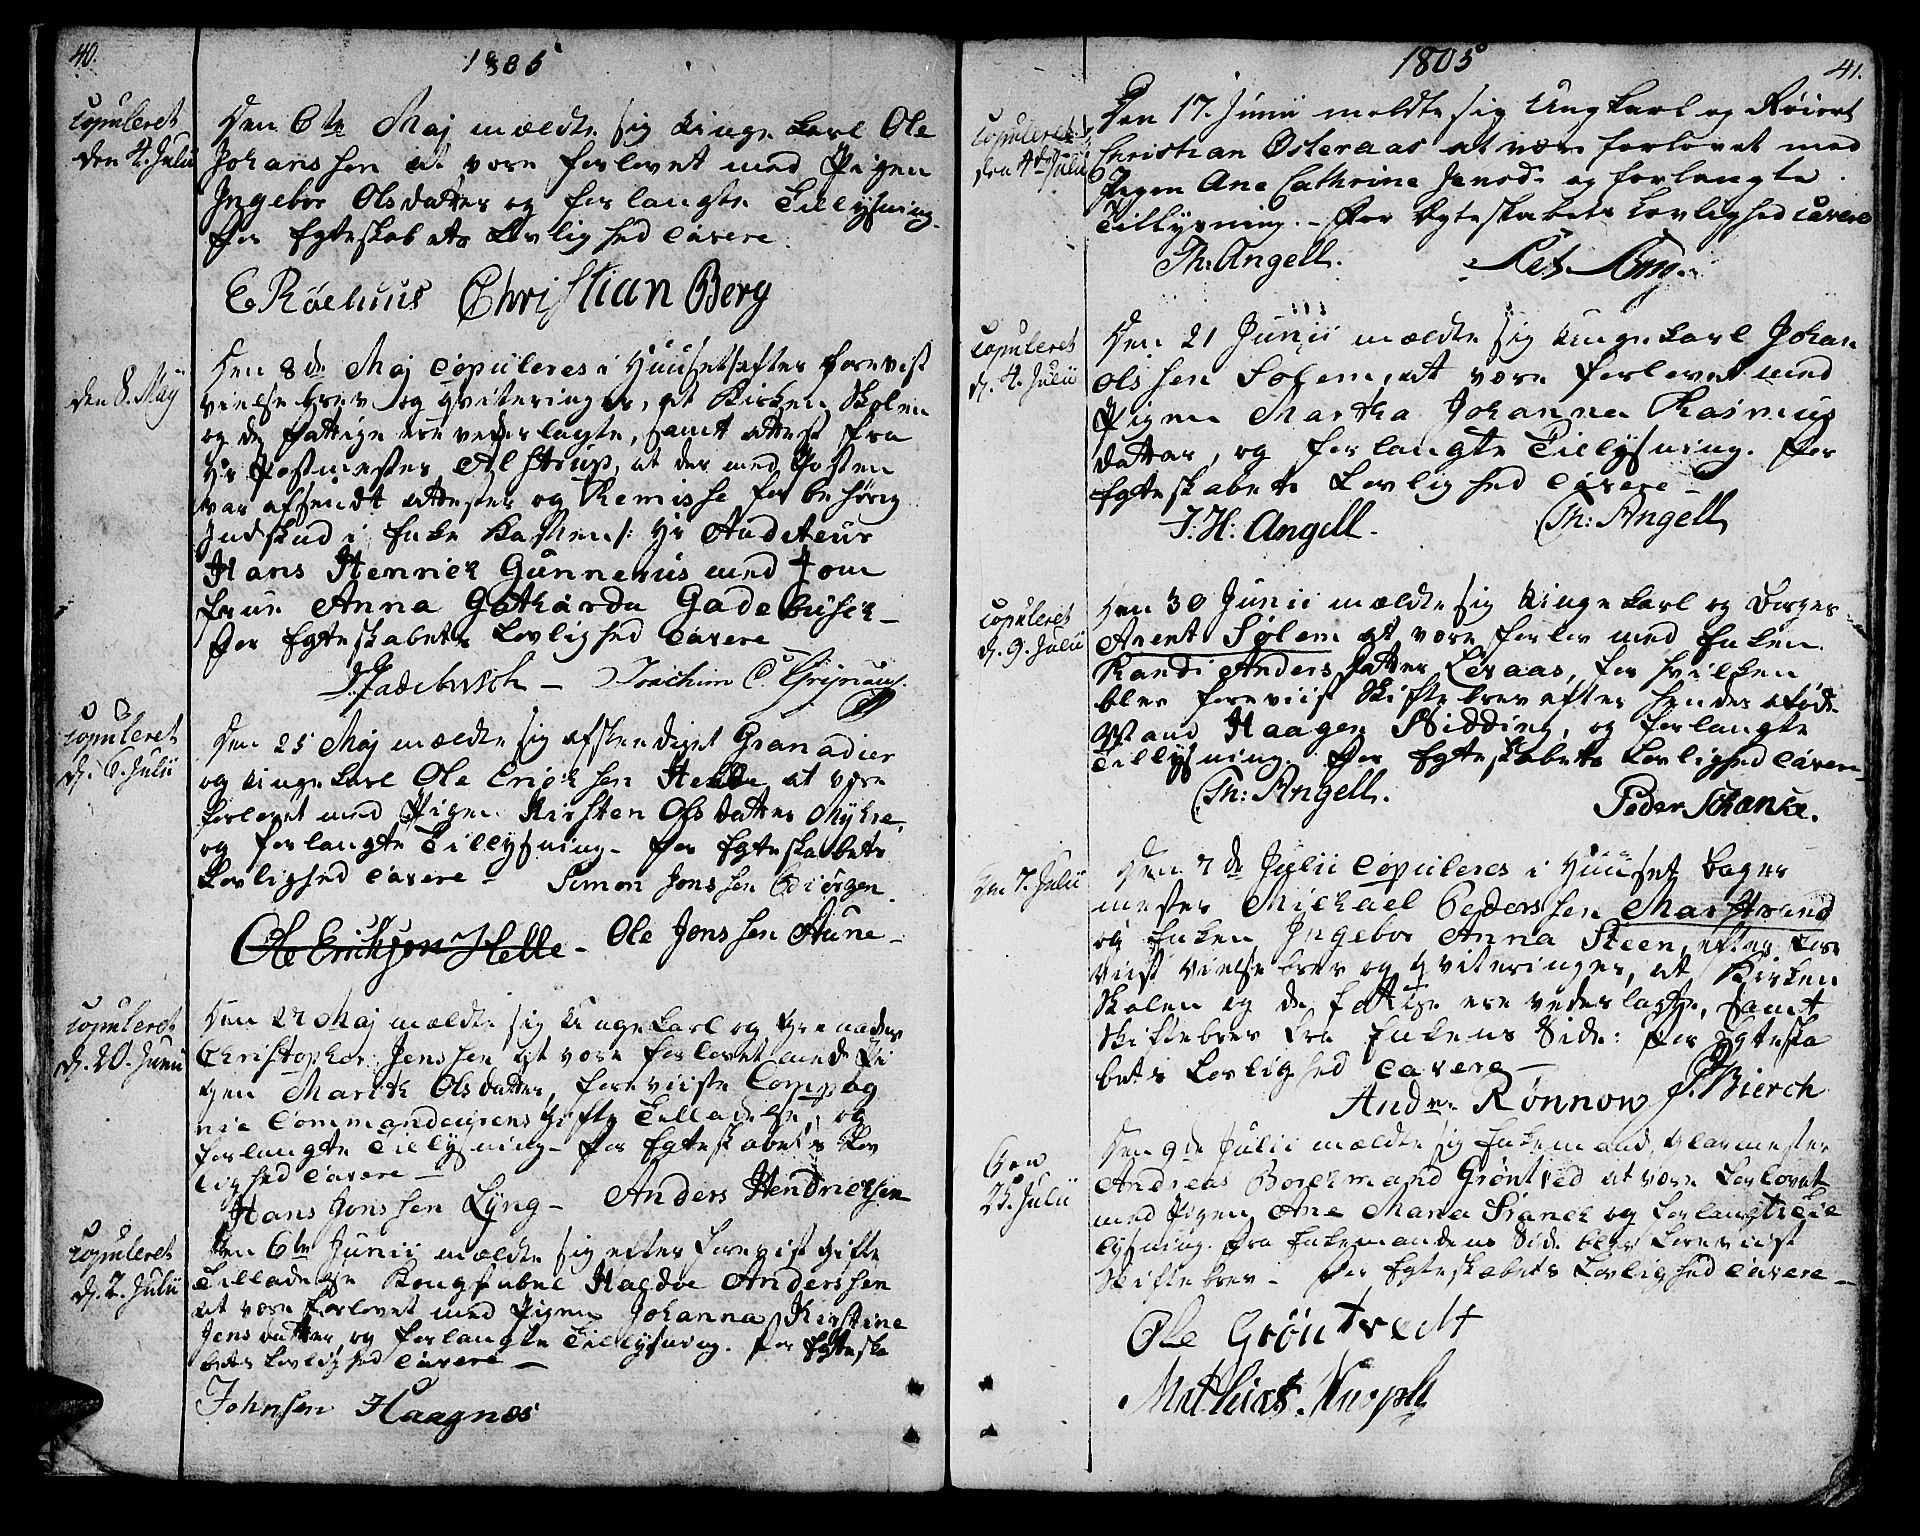 40.
1805
Copuleret
den 4. Julii
Den 6te Maj mældte sig Unge Karl Ole
Johanssen at være forlovet med Pigen
Ingebor Olsdatter og forlangte Tillysning.
For Egteskabets Lovlighed Cavere.
Christian Berg
den 8. Maÿ
Den 8de Maj Copuleres i Huuset efter forevist
Vielse brev og qviteringer, at Kirken Skolen
og de fattige ere vederlagte, samt attest fra
Hr Postmester Alstrup, at der med Posten
var afsendt attester og Remisse for behørig
Indskud i Enke Kassen /: Hr Auditeur
Hans Henrick Gunnerus med Jom
frue Anna Gotharda Gadebusch –
For Egteskabets Lovlighed Cavere
Gadebusch – Joachim C.
Copuleret
d. 6. Julii
Den 25 Maj mældte sig afskediget Granadier
og Unge Karl Ole Erichsen Helle at være
forlovet med Pigen Kirsten Olsdatter Myhre,
og forlangte Tillysning – For Egteskabets
Lovlighed Cavere – Simon Jonssen
Ole Erichsen Helle – Ole Jonssen Aune –
Copuleret
d. 20. Junii
Den 27 Maj mældte sig Unge Karl og Grenader
Christopher Jenssen at være forlovet med Pi
gen Marith Olsdatter, foreviiste Compag
nie Commandeurens Gifte Tilladelse, og
forlangte Tillysning – For Egteskabets Lov
lighed Cavere –
Hans Jonssen Lyng – Anders Hendrichsen
Copuleret
d. 2. Julii
Den 6te Junii mældte sig efter forevist Gifte
Tilladelse Haldoe Anderssen
at være forlovet med Pigen Johanna Kirstine
Jensdatter og forlangte Tillysning. For Egteska
bets Lovlighed Cavere –
Johnsen Haagnæs
41.
1805
Copuleret
den 4de Julii
Den 17. Junii meldte sig Ungkarl og
Christian Østeraas at være forlovet med
Pigen Ane Cathrine Jensd. og forlangte
Tillysning. – For Egteskabets Lovlighed Cavere
Th: Angell.
Copuleret
d. 4. Julii
Den 21 Junii mældte sig Unge Karl Johan
Olssen Solem, at være forlovet med
Pigen Martha Johanna Rasmus
datter, og forlangte Tillysning. For
Egteskabets Lovlighed Cavere –
J. H: Angell. Th: Angell
Copuleret
d. 9. Julii
Den 30 Junii mældte sig Unge Karl og Borger
Arent Solem at være forlov med Enken
Randi Andersdatter Leraas, for hvilken
blev foreviist Skifte brev efter hendes afdøde
Mand Haagen Hidding, og forlangte
Tillysning. For Egteskabets Lovlighed Cavere –
Th: Angell. Peder Schanke.
den 7. Julii
Den 7de Julii Copuleres i Huuset Bager
mester Mickael Pederssen Marstrand
og Enken Ingebor Anna Steen, efter fore
viist Vielse brev og qviteringer, at Kirken
Skolen og de fattige ere vederlagte, samt
Skiftebrev fra Enkens Side: For Egteska
bets Lovlighed Cavere –
Andr. Rønnow P. Bierch
Den
25. Julii
Den 9de Julii mældte sig Enkemand, Glarmester
Andreas Borchmand Grøntved at være forlovet
med Pigen Ane Maria Franck og forlangte Til
lysning. Fra Enkemandens Side blev foreviist
Skiftebrev – For Egteskabets Lovlighed Cavere –
Ole Gröntvedt
Mathias